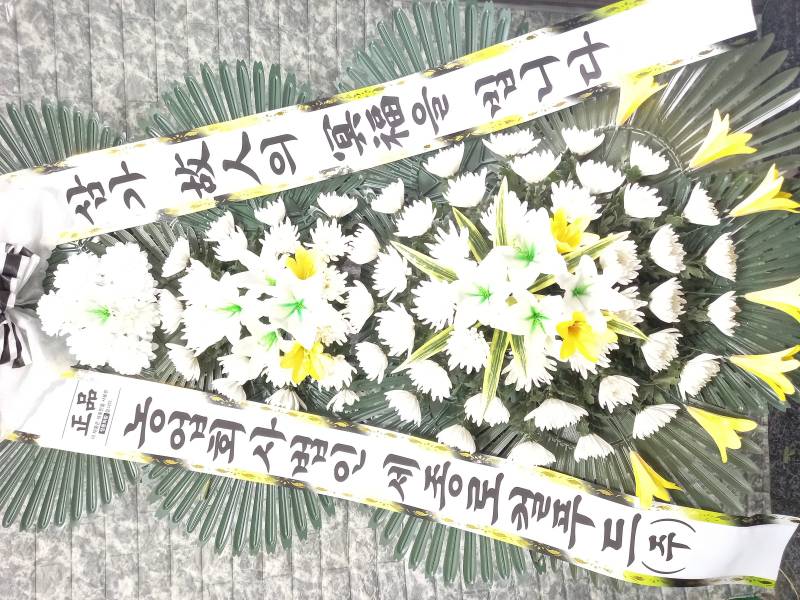 삼가 故人의 冥福을 빕니다
正品
농업회사법인 세종로컬푸드(주)